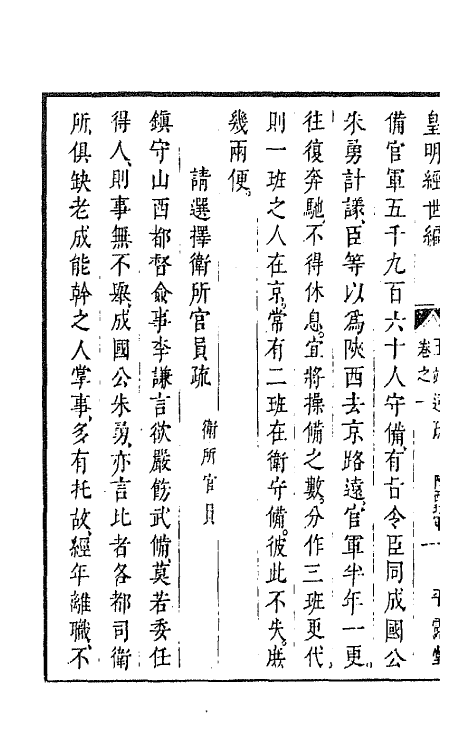 皇明經世編
卷之一
平露堂
備官軍五千九百六十人守備有旨令臣同成國公
朱勇計議臣等以爲陝西去京路遠官軍半年一更
往復奔馳不得休息宜將操備之數分作三班更代
則一班之人在京常有二班在衛守備彼此不失庶
幾兩便
請選擇衛所官員疏 衛所官員
鎮守山西都督僉事李謙言欲嚴飭武備莫若委任
得人則事無不舉成國公朱勇亦言比者各都司衛
所俱缺老成能幹之人掌事多有托故經年離職不